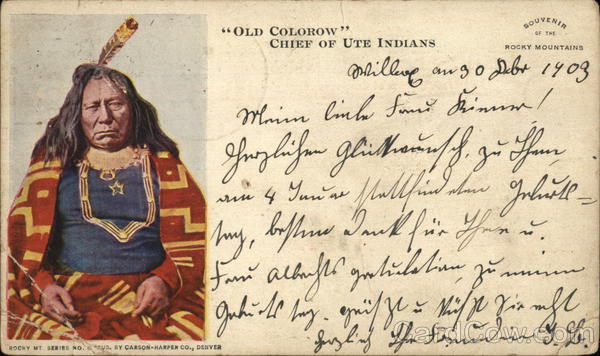 "OLD COLOROW"
CHIEF OF UTE INDIANS
SOUVENIR
OF THE
ROWKY MOUNTAINS
30 1903
Meine liebe Frau
Herzlichen Glückwunsch, zu Ihrem
am 4 Januar stattfindeten Geburts-
tag, besten Dank für Ihre u.
Frau Albrechts gratulation, zu meinem
Geburtstag. grüßt u küßt Sie recht
herzlich Ihre
ROCKY MT. SERIES NO. PUB. BY CARSON-HARPER CO., DENVER
CardCow.com